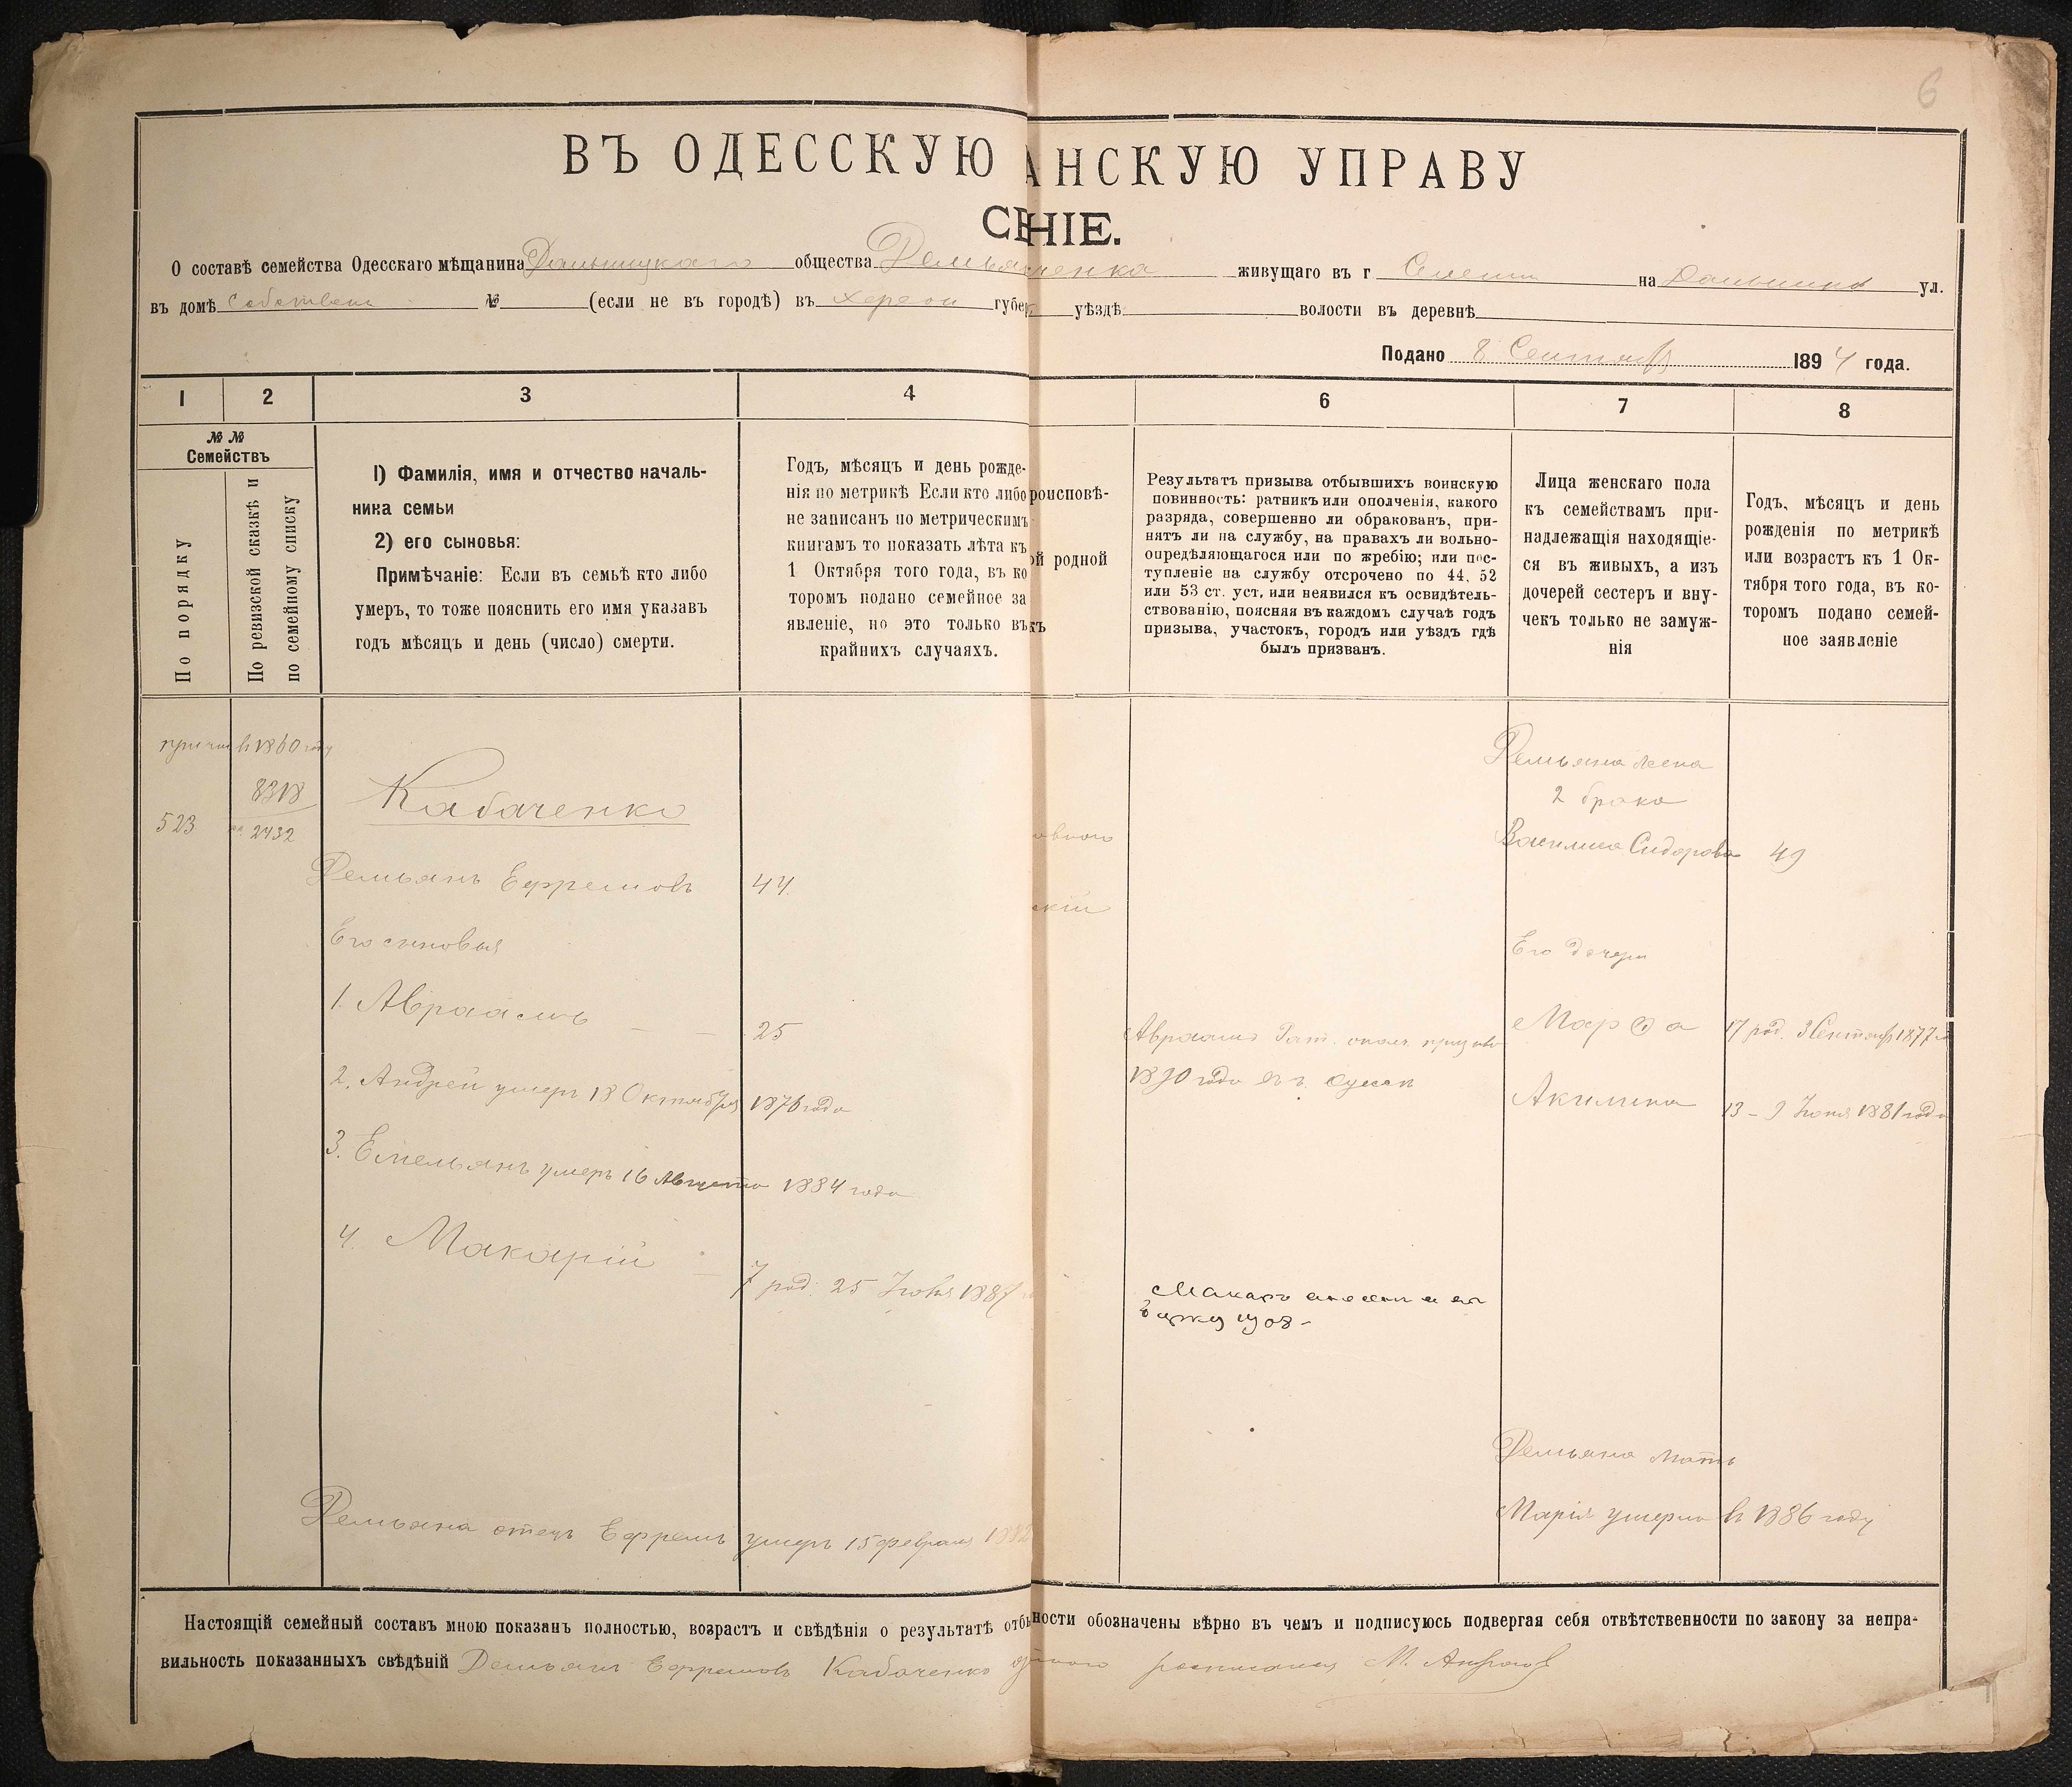 6
ВЪ ОДЕССКУЮ АНСКУЮ УПРАВУ
СЕНІЕ.
О составѣ семейства Одесскаго мѣщанина Дальницкаго общества Демьяна ченка живущаго въ г на ул.
въ домѣ собствен № (если не въ городѣ) въ Херсон губер уѣздѣ волости въ деревнѣ
Подано 8 Сентября 1894 года.
1 2 3 4 6 7 8
№ № Семействъ
По порядку
По ревизской сказкѣ и
по семейному списку
1) Фамилія, имя и отчество началь-
ника семьи
2) его сыновья:
Примѣчаніе: Если въ семьѣ кто либо
умеръ, то тоже пояснить его имя указавъ
годъ мѣсяцъ и день (число) смерти.
Годъ, мѣсяцъ и день рожде-
нія по метрикѣ Если кто либо
не записанъ по метрическимъ
книгамъ то показать лѣта къ
1 Октября того года, въ ко
торомъ подано семейное за
явленіе, но это только въ
крайнихъ случаяхъ.
роисповѣ-
ой родной
къ
Результатъ призыва отбывшихъ воинскую
повинность: ратникъ или ополченія, какого
разряда, совершенно ли обракованъ, при-
нятъ ли на службу, на правахъ ли вольно-
опредѣляющагося или по жребію; или пос-
тупленіе на службу отсрочено по 44, 52
или 53 ст. уст. или неявился къ освидѣтель-
ствованію, поясняя въ каждомъ случаѣ годъ
призыва, участокъ, городъ или уѣздъ гдѣ
былъ призванъ.
Лица женскаго пола
къ семействамъ при-
надлежащія находящіе-
ся въ живыхъ, а изъ
дочерей сестеръ и вну-
чекъ только не замуж-
нія
Годъ, мѣсяцъ и день
рожденія по метрикѣ
или возрастъ къ 1 Ок-
тября того года, въ ко-
торомъ подано семей-
ное заявленіе
в 1860 году
8318
523 2432
Кабаченко
Демьянъ Ефремовъ 44
Его сыновья
1. Авраамъ — — 25
2. Андрей умеръ 18 Октября 1876 года
3. Емельянъ умеръ 16 Августа 1884 года
4. Макарій — 7 род. 25 1887
Демьяна отецъ Ефремъ умеръ 15 февраля 1882
овного
скій
Авраамъ Рат. ополч. призыва
1890 года въ г. Одессе
Макаръ
1908 -
Демьяна жена
2 брака
Василиса Сидорова 49
Его дочери
Марѳа 17 род. 3 Сентября 1877
Акилина 13 - 9 Іюня 1881 года
Демьяна мать
Марія умерла в 1886 году
Настоящій семейный составъ мною показанъ полностью, возрастъ и свѣдѣнія о результатѣ отбы ности обозначены вѣрно въ чемъ и подписуюсь подвергая себя отвѣтственности по закону за непра-
вильность показанныхъ свѣдѣній Демьянъ Ефремовъ Кабаченко расписался М.